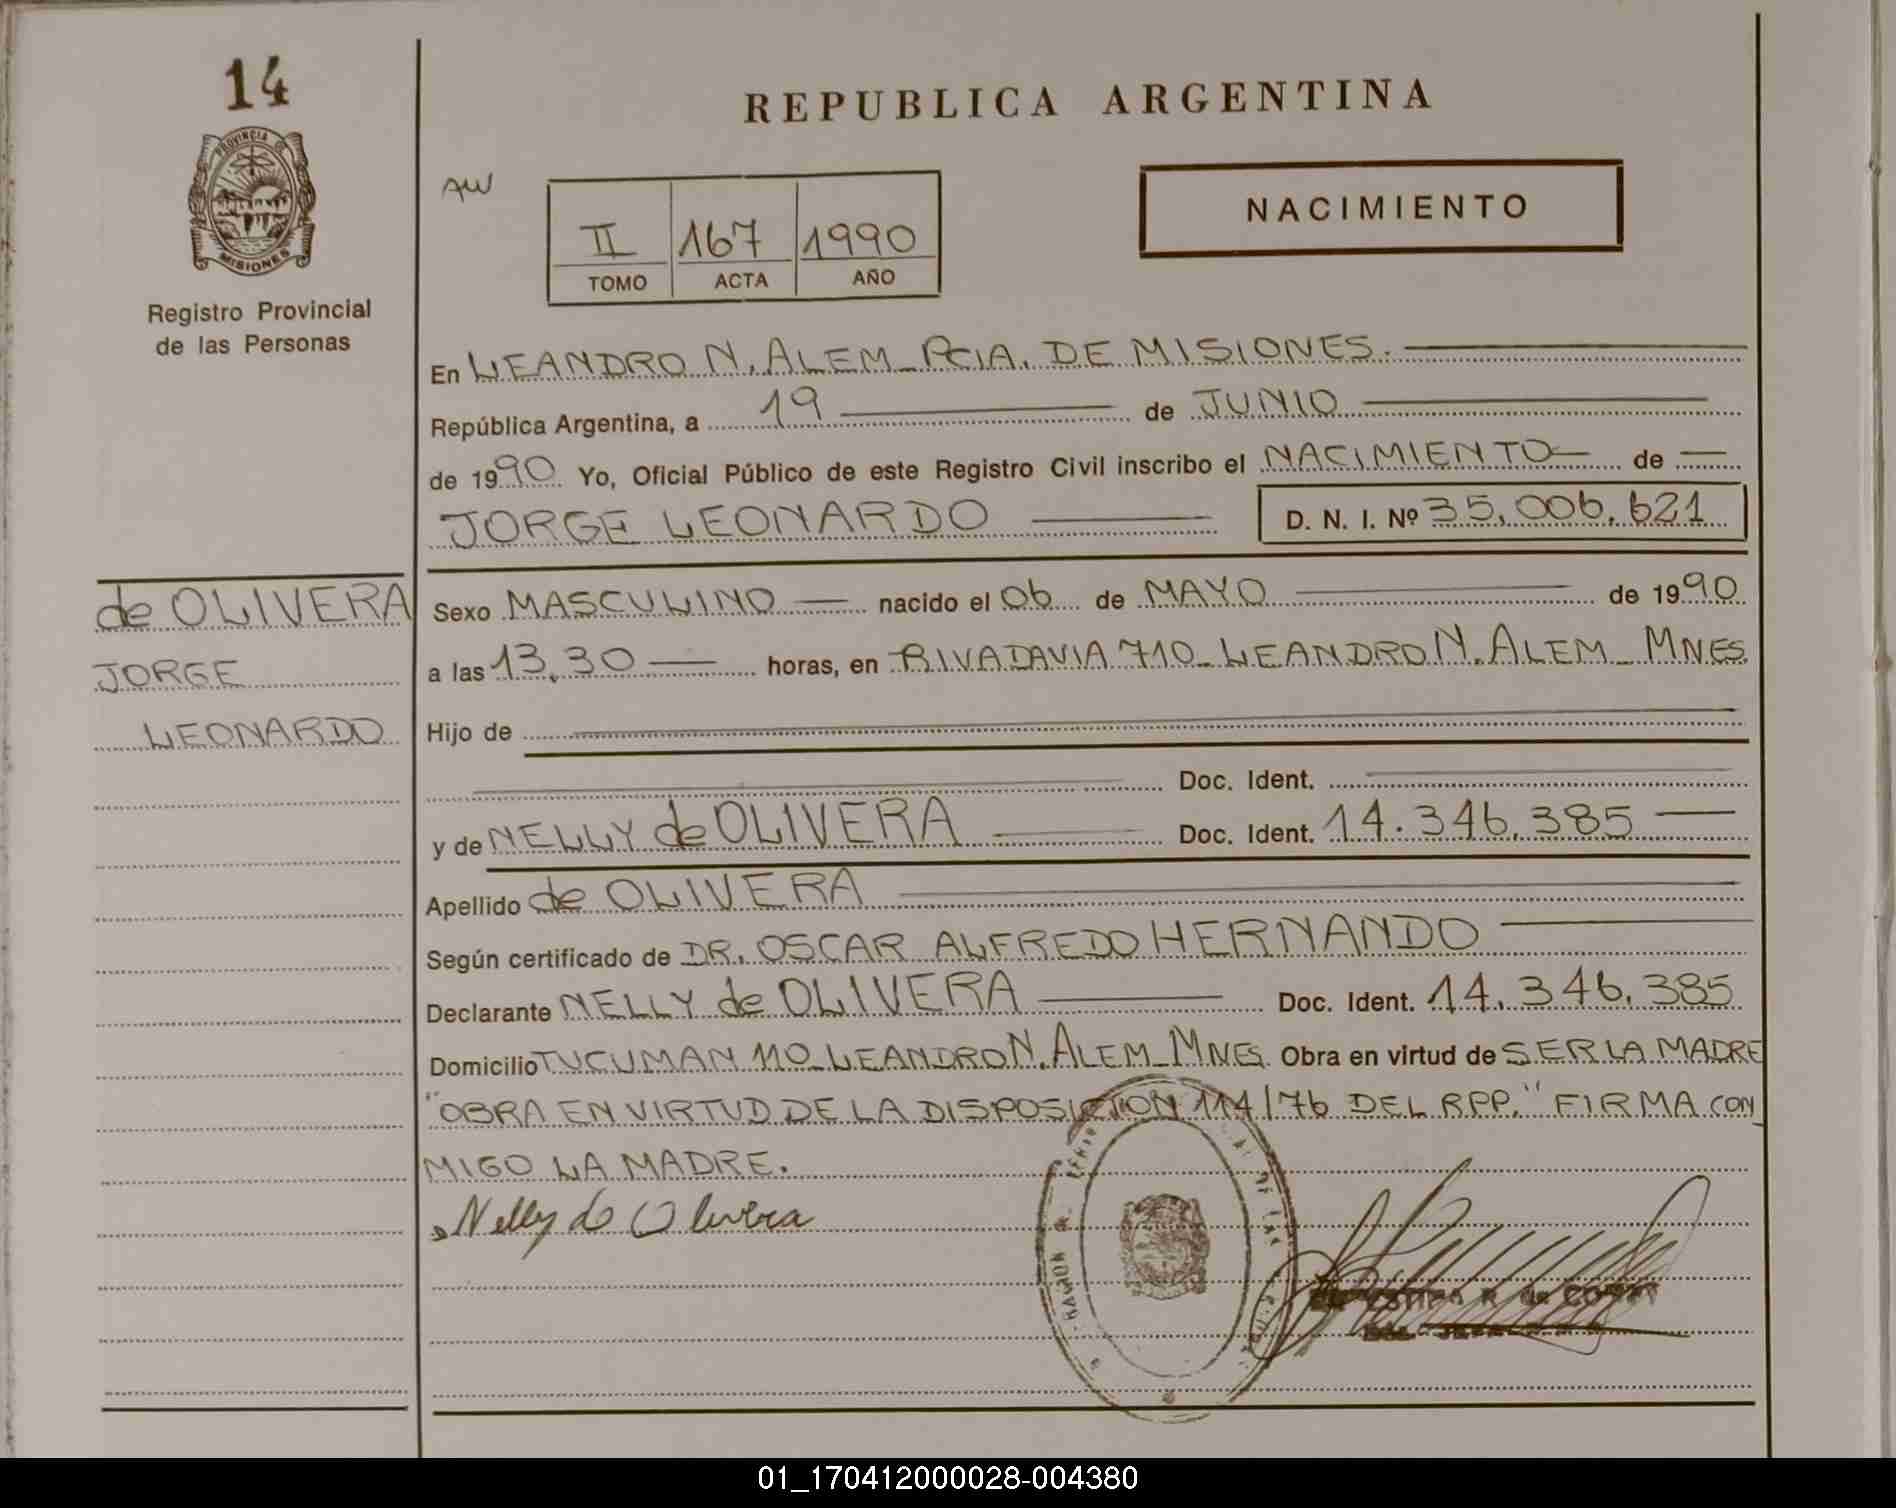 14
PROVINCIA DE
MISIONES
Registro Provincial
de las Personas
REPUBLICA ARGENTINA
AW
II 167 1990
TOMO ACTA AÑO
NACIMIENTO
En LEANDRO N. ALEM_PCIA. DE MISIONES.
República Argentina, a 19 de JUNIO
de 1990 Yo, Oficial Público de este Registro Civil inscribo el NACIMIENTO de
JORGE LEONARDO D. N. I. Nº 35.006.621
de OLIVERA
JORGE
LEONARDO
Sexo MASCULINO nacido el 06 de MAYO de 1990
a las 13,30 horas, en RIVADAVIA 710_LEANDRO N. ALEM_MNES.
Hijo de
Doc. Ident.
y de NELLY de OLIVERA Doc. Ident. 14.346.385
Apellido de OLIVERA
Según certificado de DR. OSCAR ALFREDO HERNANDO
Declarante NELLY de OLIVERA Doc. Ident. 14.346.385
Domicilio TUCUMAN 110_LEANDRO N. ALEM_MNES. Obra en virtud de SER LA MADRE
"OBRA EN VIRTUD DE LA DISPOSICION 114/76 DEL RPP." FIRMA CON
MIGO LA MADRE.
Nelly de Olivera
01_170412000028-004380